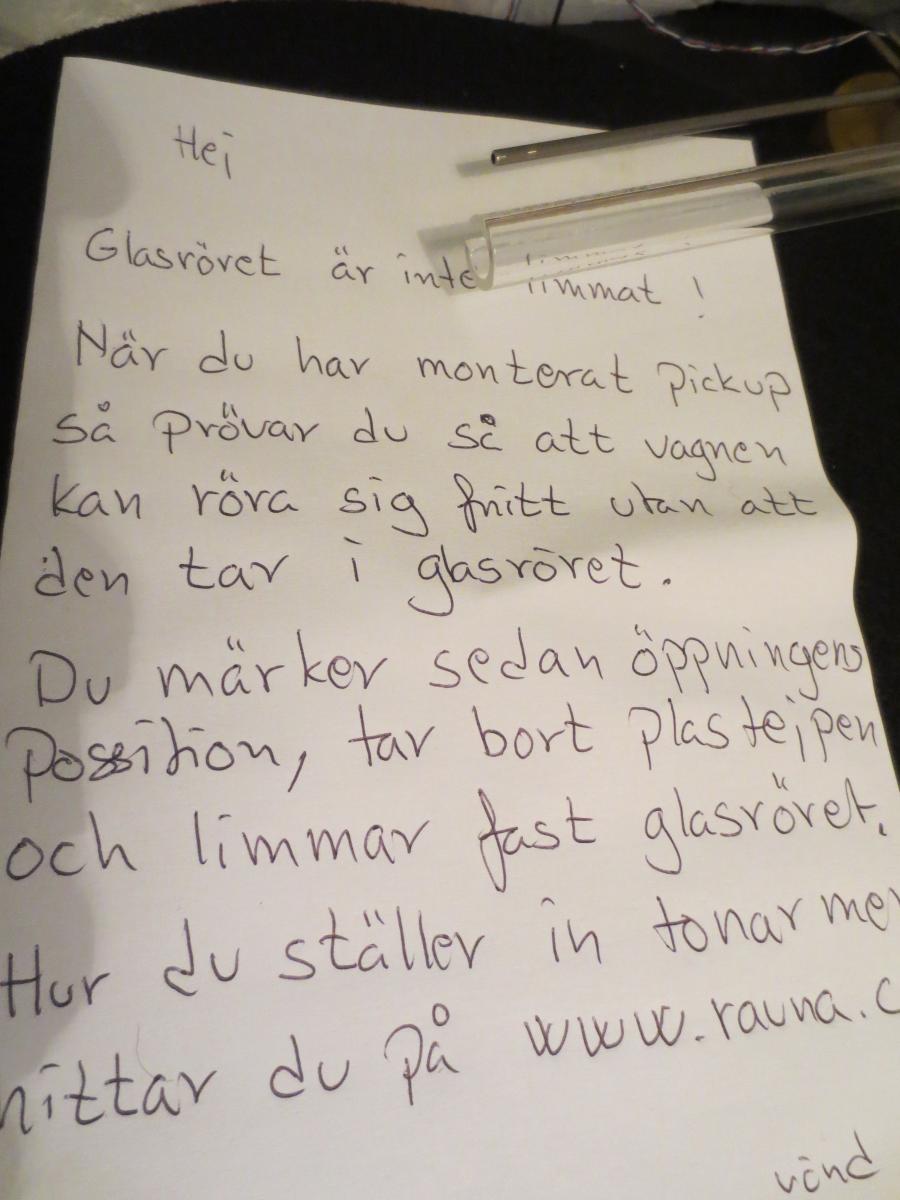 Hej
Glasröret är inte limmat !
När du har monterat pickup
så prövar du så att vagnen
kan röra sig fritt utan att
den tar i glasröret.
Du märker sedan öppningens
Possition, tar bort plastejpen
och limmar fast glasröret.
Hur du ställer in tonarmen
hittar du på www.rauna.c
vänd